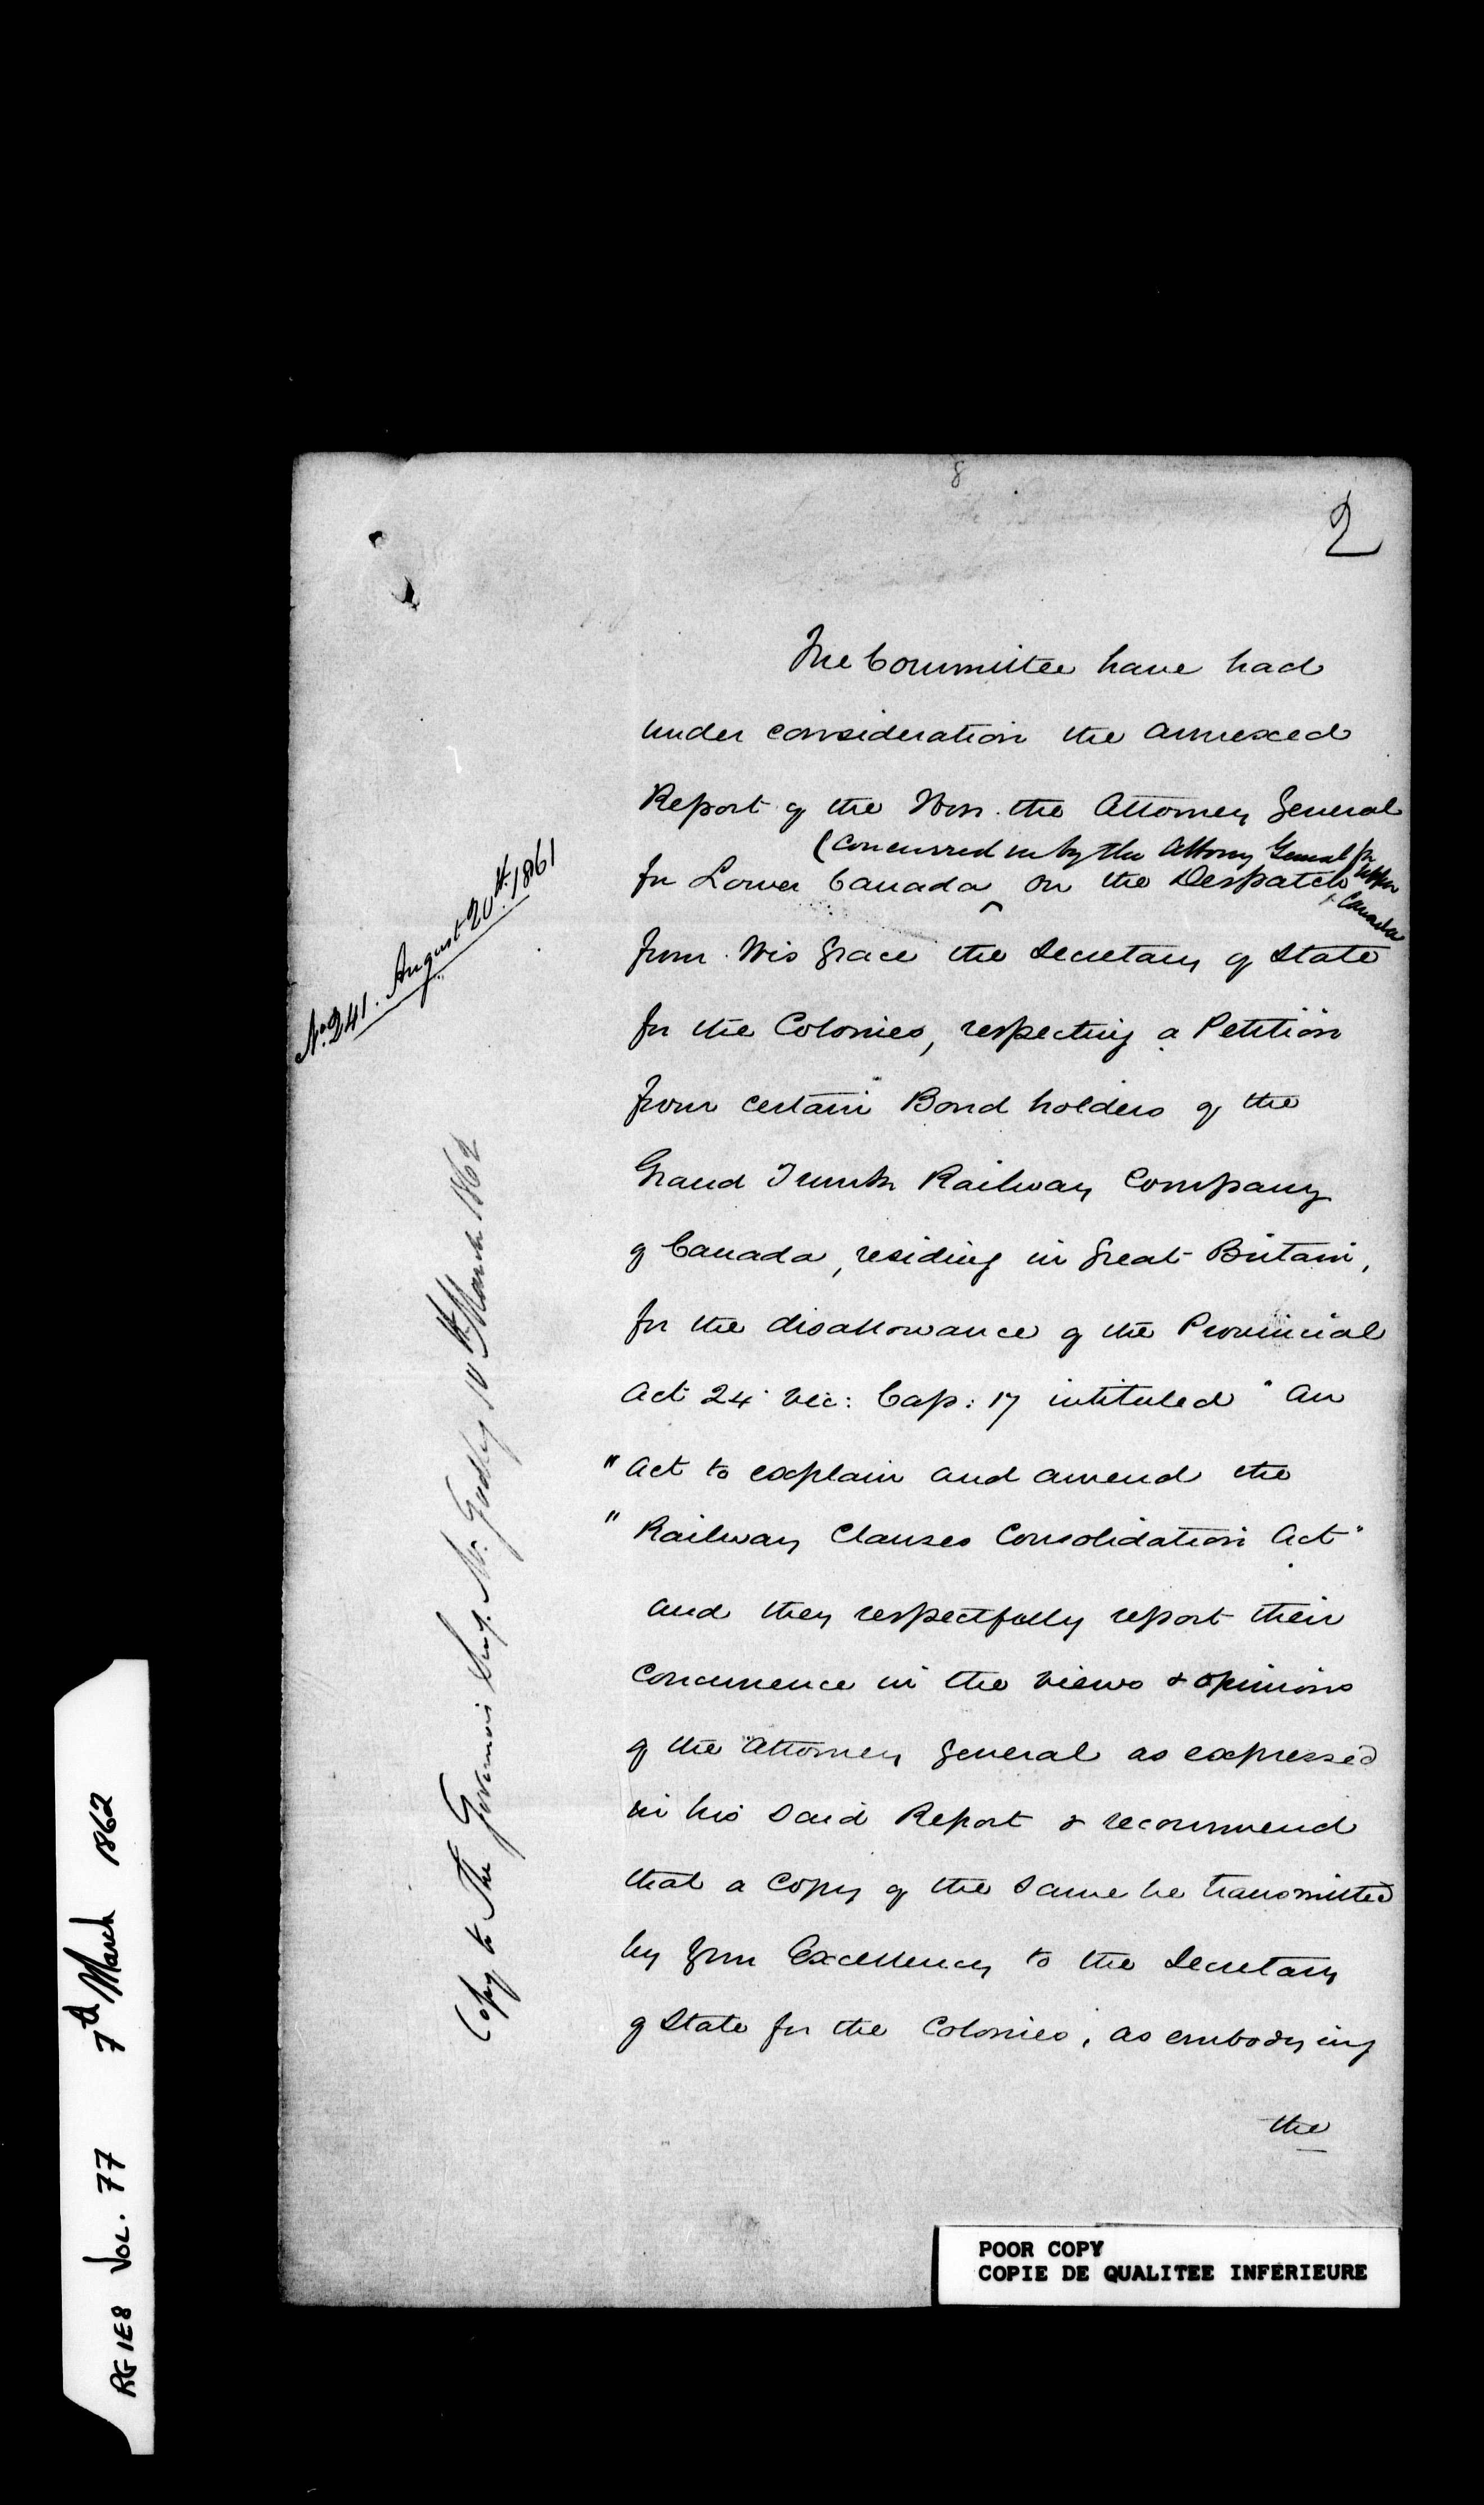 8
2
The Committee have had
under consideration the annexed
Report of the Hon. the Attorney General
(concurred in by the Attorny General for Upper Canada
for Lower Canada ^ on the Despatch
from His Grace the Secretary of State
for the Colonies, respecting a Petition
from certain Bond holders of the
Grand Trunk Railway Company
of Canada, residing in Great Britain,
for the disallowance of the Provincial
Act 24 Vic: Cap: 17 intituled "An
" Act to explain and amend the
" Railway Clauses Consolidation Act"
and they respectfully report their
concurrence in the views & opinions
of the Attorney General as expressed
in his said Report & recommend
that a Copy of the same be transmitted
by Your Excellency to the Secretary
of State for the Colonies, as embodying
the
No. 241. August 20th. 1861
Copy to The Governor's Secy. Mr. Godley 10th March 1862
RG 1E8 VOL. 77 7th March 1862
POOR COPY
COPIE DE QUALITEE INFERIEURE